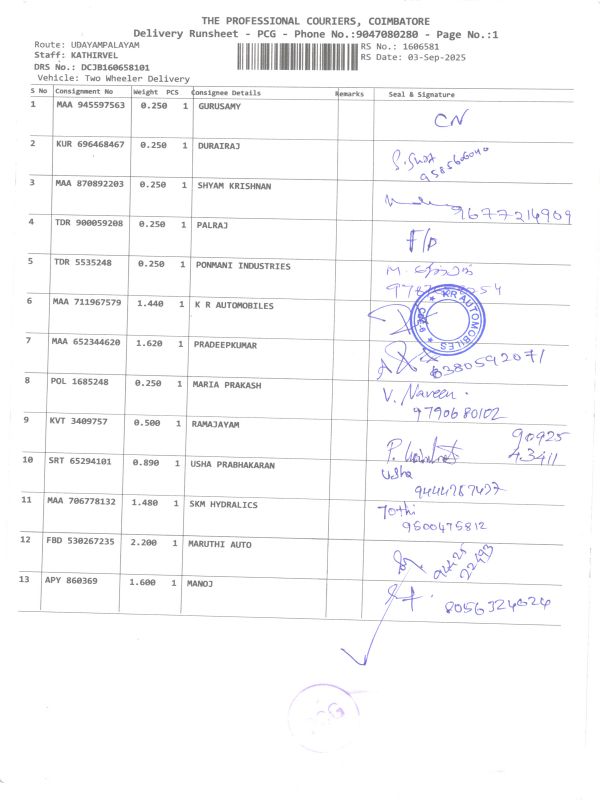 THE PROFESSIONAL COURIERS, COIMBATORE
Delivery Runsheet - PCG - Phone No.:9047080280 - Page No.:1
Route: UDAYAMPALAYAM
RS No.: 1606581
Staff: KATHIRVEL
RS Date: 03-Sep-2025
DRS No.: DCJB160658101
Vehicle: Two Wheeler Delivery
S No Consignment No Weight PCS Consignee Details Remarks Seal & Signature
1 MAA 945597563 0.250 1 GURUSAMY CN
2 KUR 696468467 0.250 1 DURAIRAJ
3 MAA 870892203 0.250 1 SHYAM KRISHNAN 9677214909
4 TDR 900059208 0.250 1 PALRAJ F/D
5 TDR 5535248 0.250 1 PONMANI INDUSTRIES M.
6 MAA 711967579 1.440 1 K R AUTOMOBILES KR AUTOMOBILES
7 MAA 652344620 1.620 1 PRADEEPKUMAR 6380592071
8 POL 1685248 0.250 1 MARIA PRAKASH V. Naveen.
9790680102
9 KVT 3409757 0.500 1 RAMAJAYAM P. 90925
43411
10 SRT 65294101 0.890 1 USHA PRABHAKARAN Usha
9444787437
11 MAA 706778132 1.480 1 SKM HYDRALICS Jothi
9500475812
12 FBD 530267235 2.200 1 MARUTHI AUTO
22493
13 APY 860369 1.600 1 MANOJ 8056324624